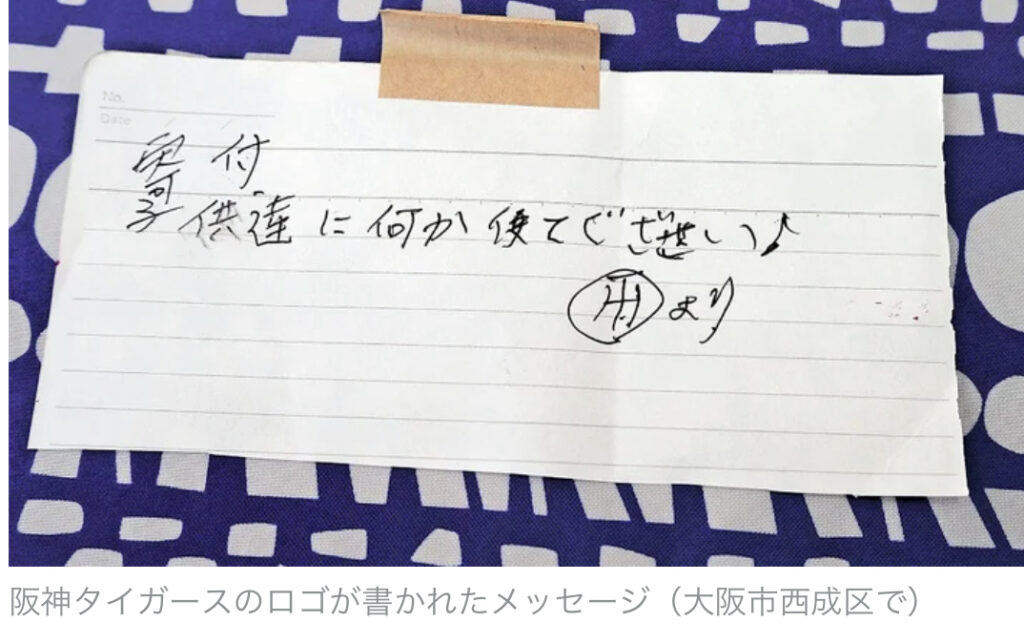 No.
Date / /
寄付
子供達に何か使て♪
より
阪神タイガースのロゴが書かれたメッセージ（大阪市西成区で）